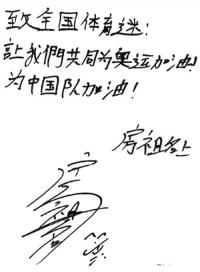 致全国体育迷：
让我們共同为奥运加油！
为中国队加油！
房祖名上